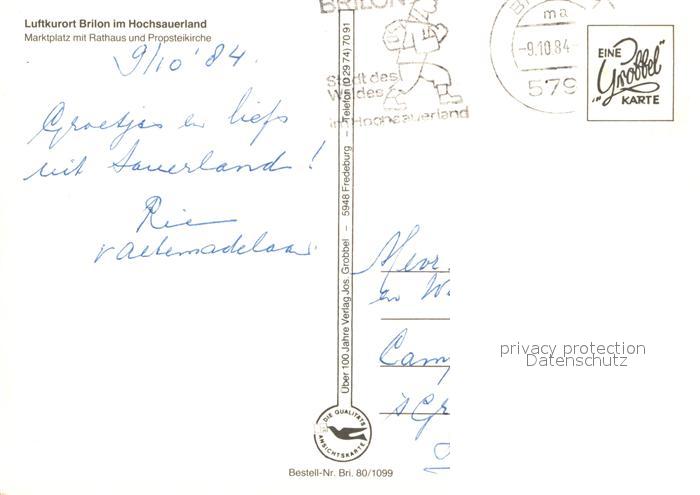 Luftkurort Brilon im Hochsauerland
Marktplatz mit Rathaus und Propsteikirche
9/10 '84.
Groetjes en liefs
uit Sauerland!
Rie
BRILON
Stadt des
Waldes
im Hochsauerland
ma
-9.10.84-
579
EINE
"Grobbel"
KARTE
Über 100 Jahre Verlag Jos. Grobbel – 5948 Fredeburg – Telefon (0 29 74) 70 91
Mevr.
en
Cam
's Gr
privacy protection
Datenschutz
DIE QUALITÄTS
ANSICHTSKARTE
Bestell-Nr. Bri. 80/1099